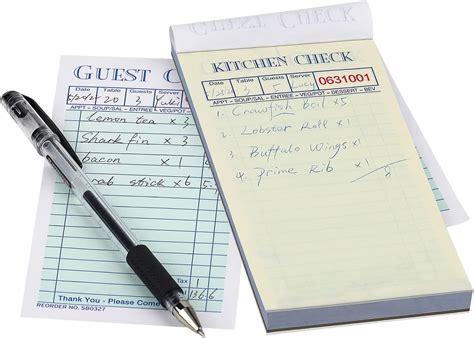 GUEST C
Date Table Guests Server
20 3
APPT - SOUP/SAL - ENTREE - VEG/POT - DESS
Lemon tea x 3
Shark fin x 3
bacon x 1
stick x 6
Tax
Thank You - Please Come
REORDER NO. SB0327
KITCHEN CHECK
Date Table Guests Server
3 5
0631001
APPT - SOUP/SAL - ENTREE - VEG/POT - DESSERT - BEV
1. Crawfish Boil x 5
2. Lobster Roll x 1
3. Buffalo Wings x 1
4. Prime Rib x 1